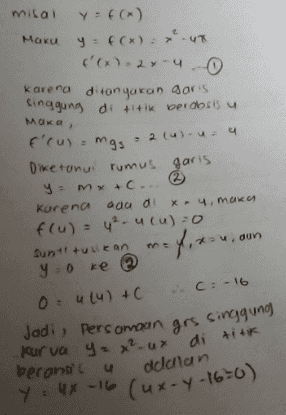 misal y = f(x)
Maka y = f(x) = x² - 4x
f'(x) = 2x - 4 ... ①
karena ditanyakan garis
singgung di titik berabsis 4
Maka,
f'(4) = mgs = 2(4) - 4 = 4
Diketahui rumus garis
y = mx + c ... ②
karena ada di x = 4, maka
f(4) = 4² - 4(4) = 0
substitusikan m = 4, x = 4, dan
y = 0 ke ②
0 = 4(4) + C ∴ C = -16
Jadi, Persamaan grs singgung
kurva y = x² - 4x di titik
berabsis 4 adalah
y = 4x - 16 (4x - y - 16 = 0)